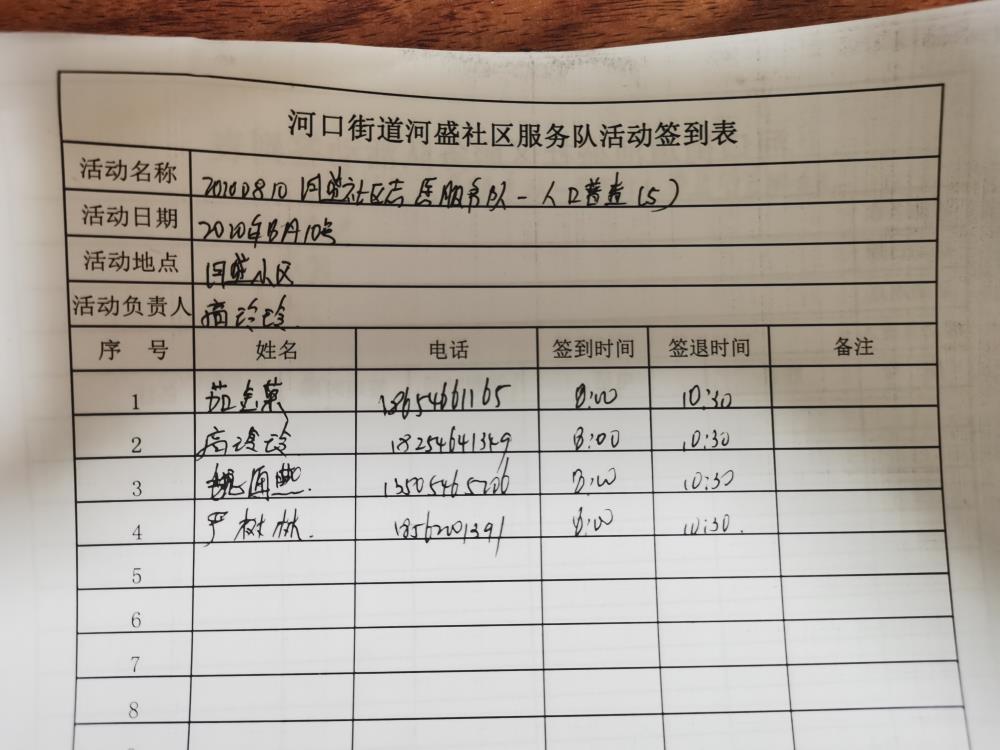 河口街道河盛社区服务队活动签到表
活动名称 20200810 河盛社区志愿服务队-人口普查(5)
活动日期 2020年8月10号
活动地点 河盛小区
活动负责人 高玲玲
序 号 姓名 电话 签到时间 签退时间 备注
1 13654661165 8:00 10:30
2 高玲玲 18254641349 8:00 10:30
3 8:00 10:30
4 严树林 8:00 10:30
5
6
7
8